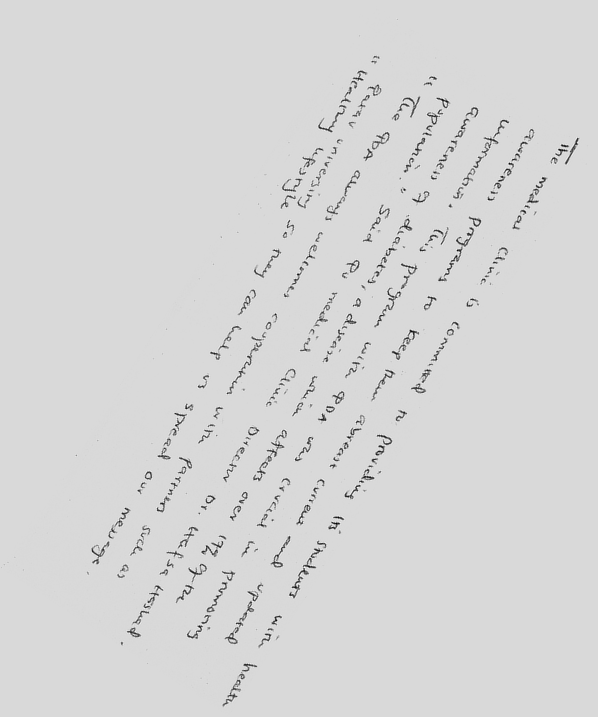 The medical clinic is committed to providing its students with health
awareness programs to keep them abreast current and updated
information. This program with QDA was crucial in promoting
awareness of diabetes, a disease which affects over 17% of the
population." Said QU medical clinic Director Dr. Hafsa Hashad.
"The QDA always welcomes cooperation with partners such as
Qatar University so they can help us spread our message.
"Healthy lifestyle